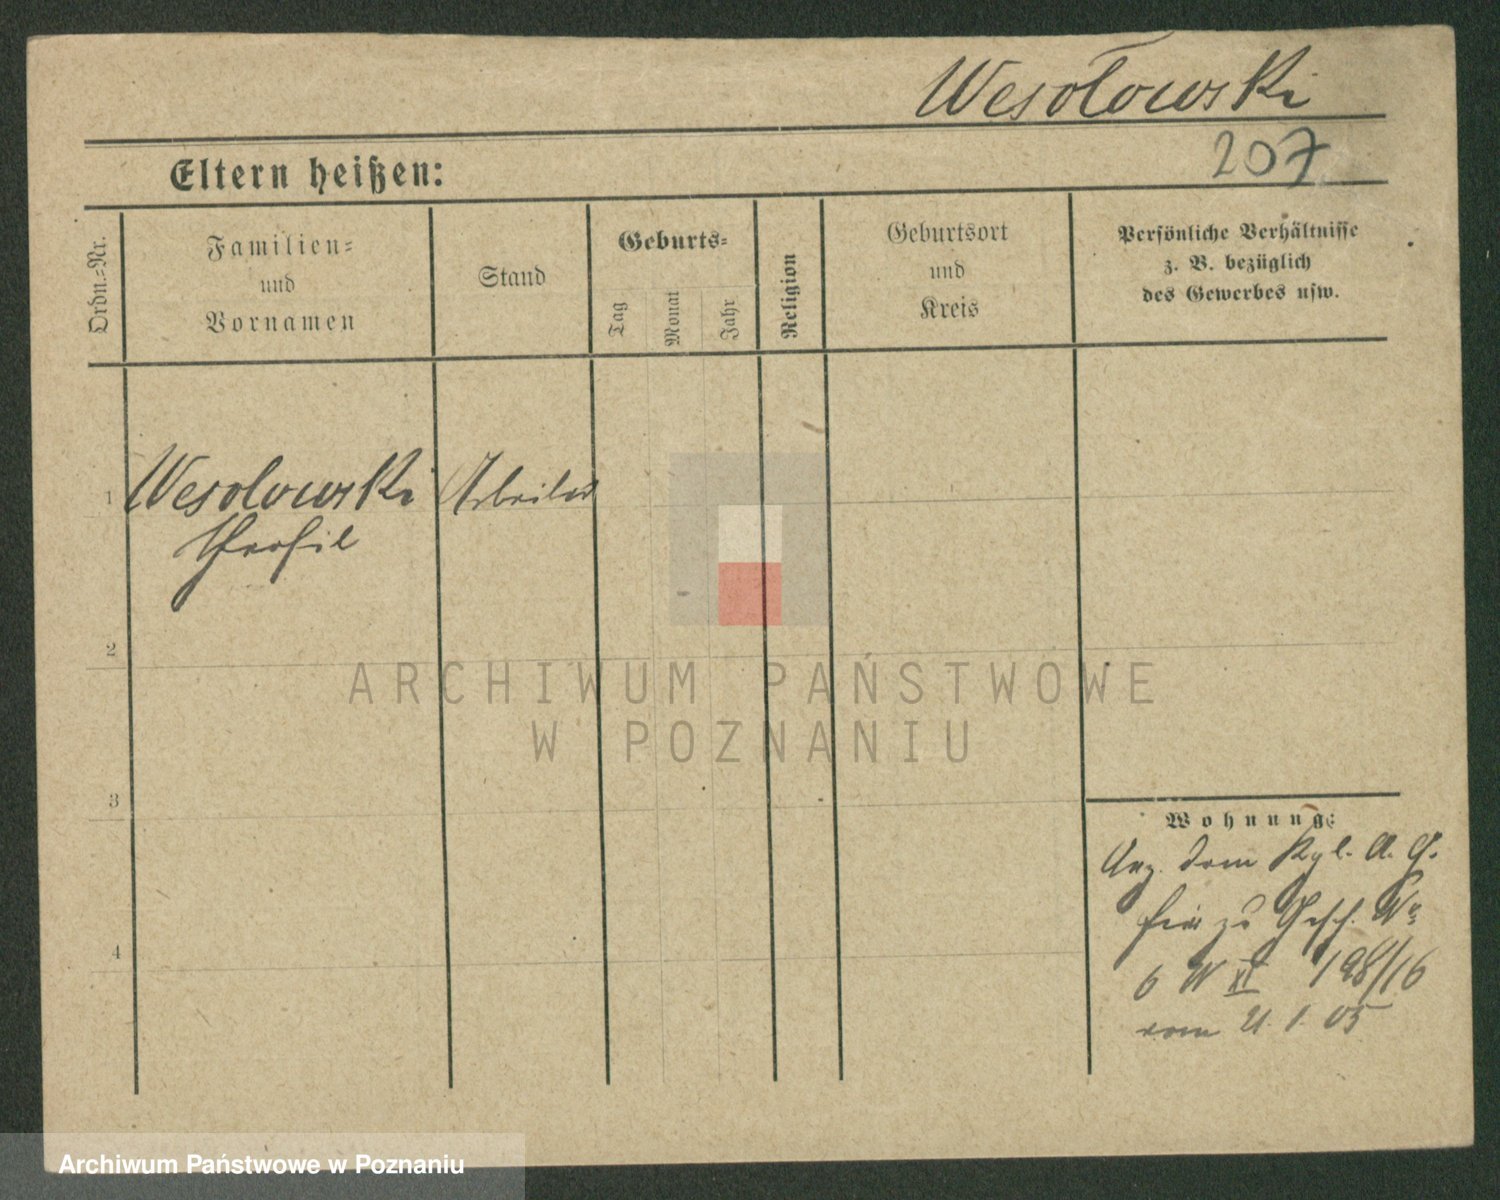 Wesołowski
207
Eltern heißen:
Ordn.=Nr.
Familien=
und
Vornamen
Stand
Geburts=
Tag
Monat
Jahr
Religion
Geburtsort
und
Kreis
Persönliche Verhältnisse
z. B. bezüglich
des Gewerbes usw.
1
Wesolowski
Arbeiter
2
3
4
Wohnung:
dem Kgl. A. G.
hier zu Gesch. No
6 W XI 198/16
vom 21. 1. 05
ARCHIWUM PAŃSTWOWE
W POZNANIU
Archiwum Państwowe w Poznaniu